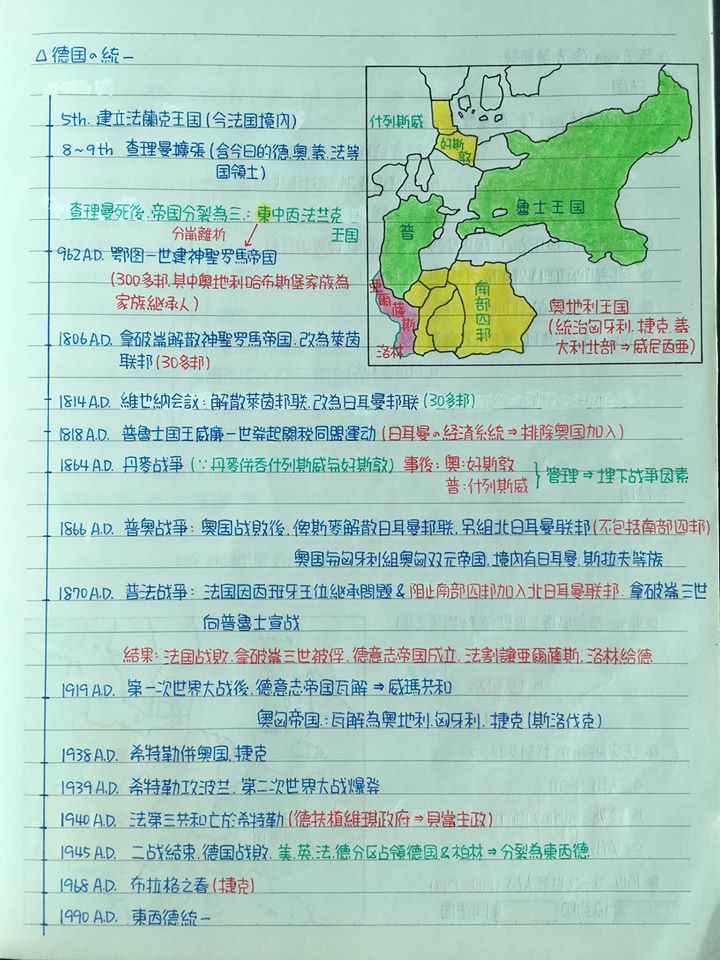 △德国の統一
5th. 建立法蘭克王国(今法国境內)
8~9th 查理曼擴張(含今日的德.奧.義.法等
国領土)
查理曼死後.帝国分裂為三:東中西法兰克
分崩離析 王国
962A.D. 鄂图一世建神聖罗馬帝国
(300多邦.其中奧地利哈布斯堡家族為
家族継承人)
1806A.D. 拿破崙解散神聖罗馬帝国.改為萊茵
联邦(30多邦)
什列斯威
好斯敦
普
魯士王国
亜爾薩斯
洛林
南部四邦
奧地利王国
(統治匈牙利.捷克.義
大利北部⇒威尼西亜)
1814A.D. 維也納会议:解散萊茵邦联.改為日耳曼邦联(30多邦)
1818A.D. 普魯士国王威廉一世発起關税同盟運动(日耳曼の経済系統⇒排除奧国加入)
1864A.D. 丹麥战爭(∵丹麥併吞什列斯威与好斯敦) 事後:奧:好斯敦
普:什列斯威 } 管理⇒埋下战爭因素
1866A.D. 普奧战爭:奧国战敗後.俾斯麥解散日耳曼邦联.另組北日耳曼联邦(不包括南部四邦)
奧国与匈牙利組奧匈双元帝国.境內有日耳曼.斯拉夫等族
1870A.D. 普法战爭:法国因西班牙王位継承問題&阻止南部四邦加入北日耳曼联邦.拿破崙三世
向普魯士宣战
結果:法国战敗.拿破崙三世被俘.德意志帝国成立.法割讓亜爾薩斯.洛林給德
1919A.D. 第一次世界大战後.德意志帝国瓦解⇒威瑪共和
奧匈帝国:瓦解為奧地利.匈牙利.捷克(斯洛伐克)
1938A.D. 希特勒併奧国.捷克
1939A.D. 希特勒攻波兰.第二次世界大战爆発
1940A.D. 法第三共和亡於希特勒(德扶植維琪政府⇒貝當主政)
1945A.D. 二战結束.德国战敗.美.英.法.德分区占領德国&柏林⇒分裂為東西德
1968A.D. 布拉格之春(捷克)
1990A.D. 東西德統一